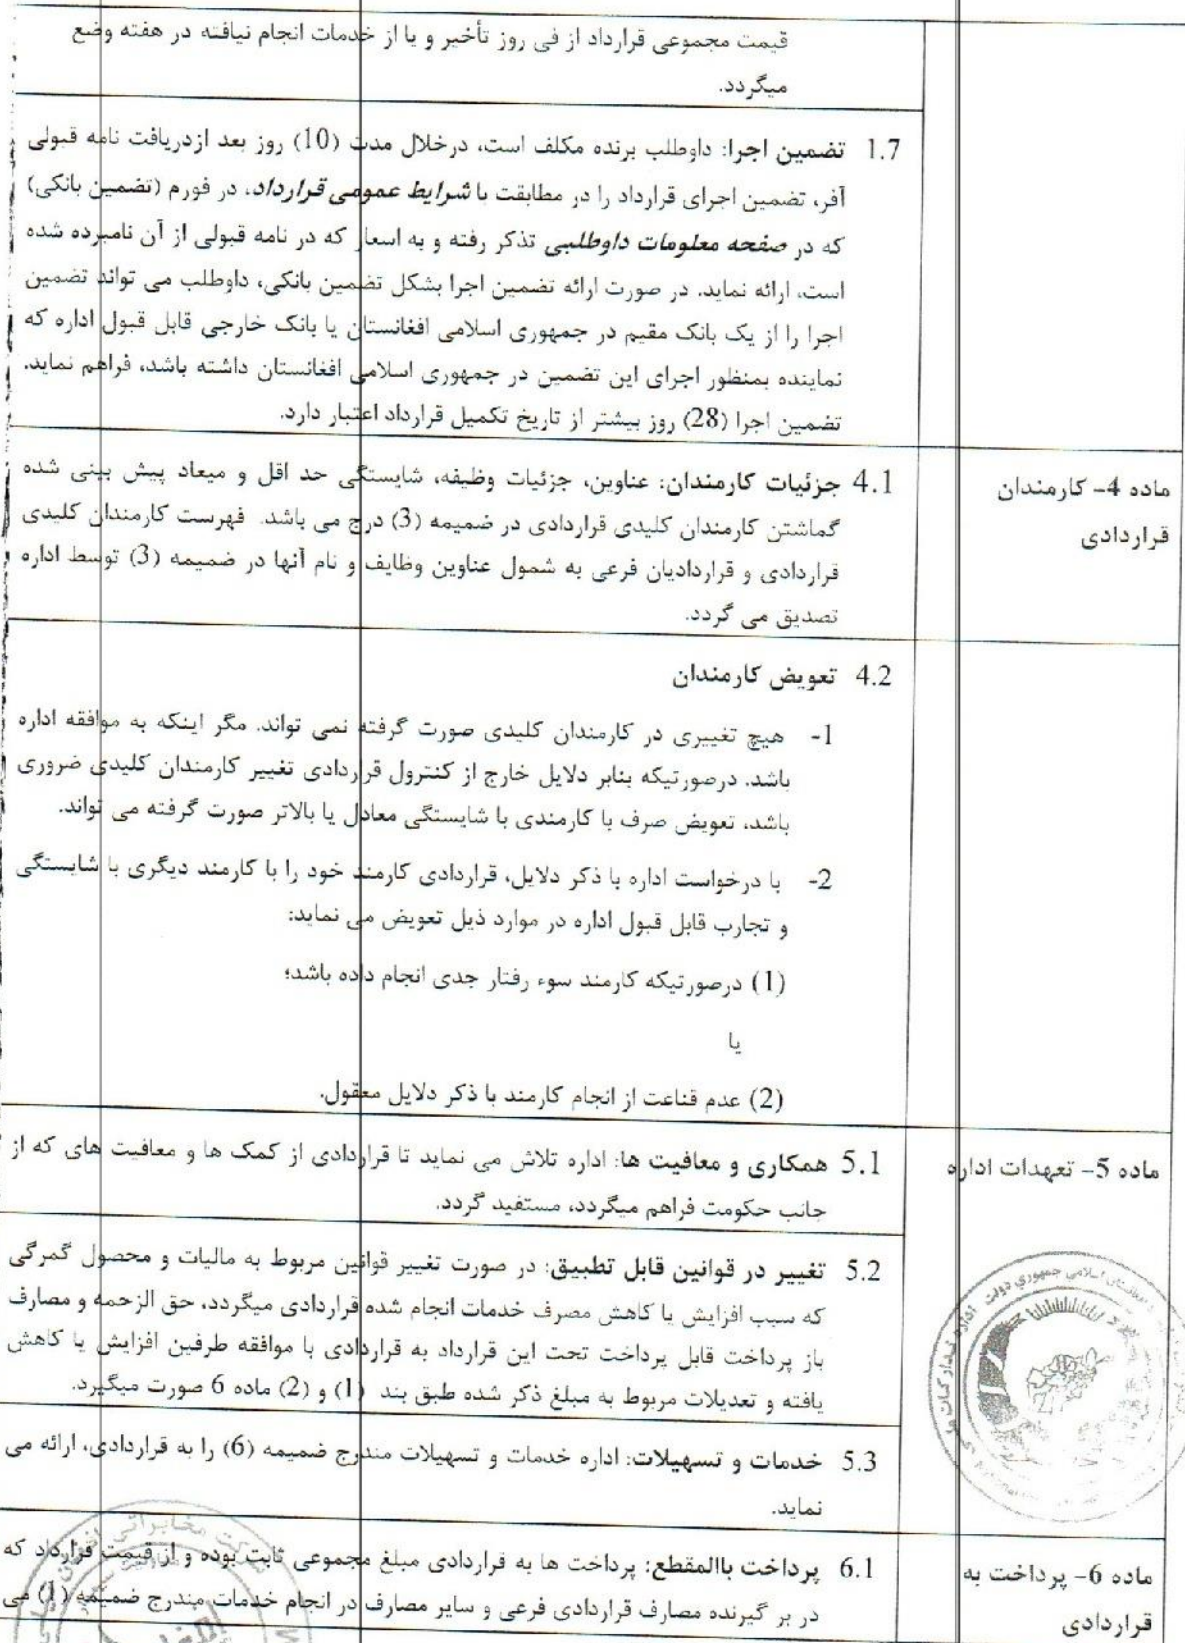 قیمت مجموعی قرارداد از فی روز تأخیر و یا از خدمات انجام نیافته در هفته وضع
میگردد.
1.7 تضمین اجرا: داوطلب برنده مکلف است، درخلال مدت (10) روز بعد ازدریافت نامه قبولی
آفر، تضمین اجرای قرارداد را در مطابقت با شرایط عمومی قرارداد، در فورم (تضمین بانکی)
که در صفحه معلومات داوطلبی تذکر رفته و به اسعار که در نامه قبولی از آن نامبرده شده
است، ارائه نماید. در صورت ارائه تضمین اجرا بشکل تضمین بانکی، داوطلب می تواند تضمین
اجرا را از یک بانک مقیم در جمهوری اسلامی افغانستان یا بانک خارجی قابل قبول اداره که
نماینده بمنظور اجرای این تضمین در جمهوری اسلامی افغانستان داشته باشد، فراهم نماید.
تضمین اجرا (28) روز بیشتر از تاریخ تکمیل قرارداد اعتبار دارد.
ماده 4- کارمندان
قراردادی
4.1 جزئیات کارمندان: عناوین، جزئیات وظیفه، شایستگی حد اقل و میعاد پیش بینی شده
گماشتن کارمندان کلیدی قراردادی در ضمیمه (3) درج می باشد. فهرست کارمندان کلیدی
قراردادی و قراردادیان فرعی به شمول عناوین وظایف و نام آنها در ضمیمه (3) توسط اداره
تصدیق می گردد.
4.2 تعویض کارمندان
1- هیچ تغییری در کارمندان کلیدی صورت گرفته نمی تواند. مگر اینکه به موافقه اداره
باشد. درصورتیکه بنابر دلایل خارج از کنترول قراردادی تغییر کارمندان کلیدی ضروری
باشد، تعویض صرف با کارمندی با شایستگی معادل یا بالاتر صورت گرفته می تواند.
2- با درخواست اداره با ذکر دلایل، قراردادی کارمند خود را با کارمند دیگری با شایستگی
و تجارب قابل قبول اداره در موارد ذیل تعویض می نماید:
(1) درصورتیکه کارمند سوء رفتار جدی انجام داده باشد؛
یا
(2) عدم قناعت از انجام کارمند با ذکر دلایل معقول.
ماده 5- تعهدات اداره
5.1 همکاری و معافیت ها: اداره تلاش می نماید تا قراردادی از کمک ها و معافیت های که از
جانب حکومت فراهم میگردد، مستفید گردد.
5.2 تغییر در قوانین قابل تطبیق: در صورت تغییر قوانین مربوط به مالیات و محصول گمرگی
که سبب افزایش یا کاهش مصرف خدمات انجام شده قراردادی میگردد، حق الزحمه و مصارف
باز پرداخت قابل پرداخت تحت این قرارداد به قراردادی با موافقه طرفین افزایش یا کاهش
یافته و تعدیلات مربوط به مبلغ ذکر شده طبق بند (1) و (2) ماده 6 صورت میگیرد.
5.3 خدمات و تسهیلات: اداره خدمات و تسهیلات مندرج ضمیمه (6) را به قراردادی، ارائه می
نماید.
ماده 6- پرداخت به
قراردادی
6.1 پرداخت باالمقطع: پرداخت ها به قراردادی مبلغ مجموعی ثابت بوده و از قیمت قرارداد که
در بر گیرنده مصارف قراردادی فرعی و سایر مصارف در انجام خدمات مندرج ضمیمه (1) می